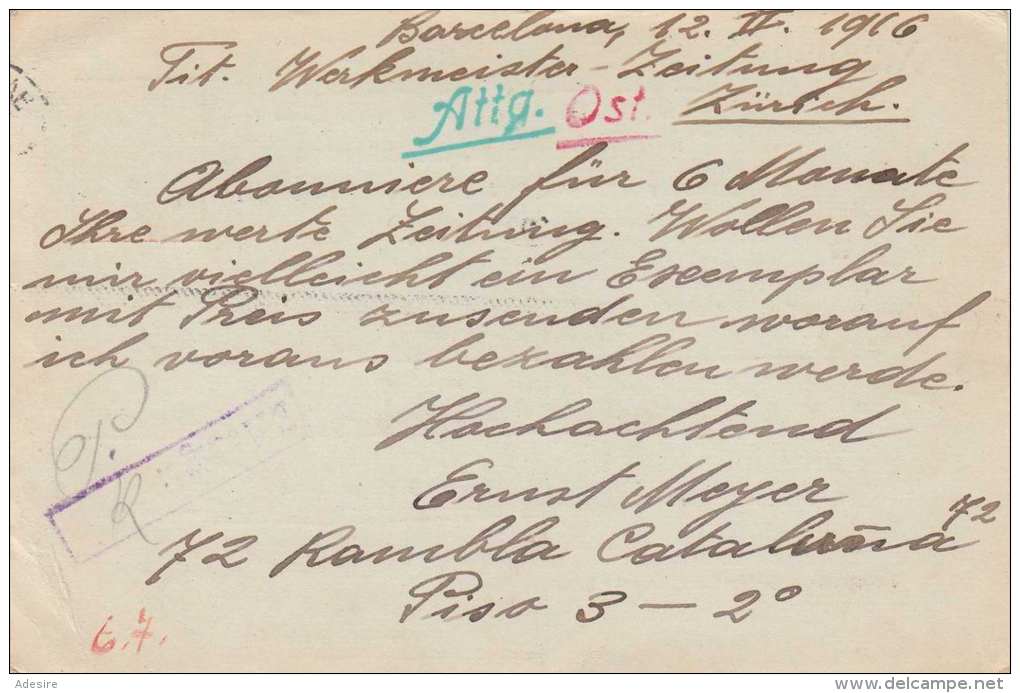 Barcelona, 12. II. 1916
Tit. Werkmeister-Zeitung
Zürich.
Attg. Ost.
Abonniere für 6 Monate
Ihre werte Zeitung. Wollen Sie
mir vielleicht ein Exemplar
mit Preis zusenden worauf
ich voraus bezahlen werde.
Hochachtend
Ernst Meyer
72 Rambla Cataluña 72
Piso 3 — 2º
6.7.
Adesire
www.delcampe.net